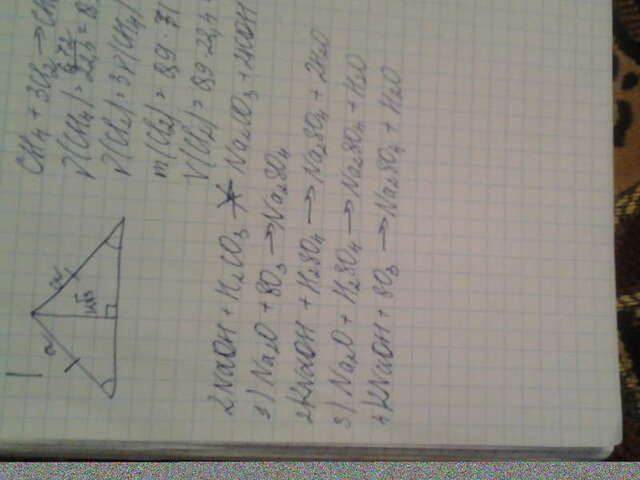 a a
14√3
CH4 + 3Cl2 → CH
ν(CH4) = 6,72/22,4 = 0,
ν(Cl2) = 3ν(CH4)
m(Cl2) = 0,9 · 71
V(Cl2) = 0,9 · 22,4 =
2NaOH + H2CO3 Na2CO3 + 2HOH
1) Na2O + SO3 → Na2SO4
2) 2NaOH + H2SO4 → Na2SO4 + 2H2O
3) Na2O + H2SO4 → Na2SO4 + H2O
4) 2NaOH + SO3 → Na2SO4 + H2O